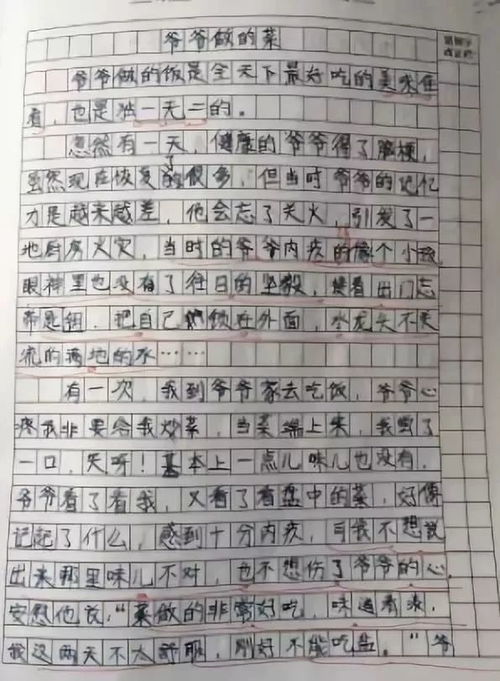 爷爷做的菜
爷爷做的饭是全天下最好吃的美味佳
肴,也是独一无二的。
忽然有一天,健康的爷爷得了脑梗,
虽然现在恢复了很多,但当时爷爷的记忆
力是越来越差,他会忘了关火,引发了一
场厨房火灾,当时的爷爷内疚的像个小孩
眼神里也没有了往日的坚毅,接着出门忘
带钥匙,把自己锁在外面,水龙头不关
流的满地的水……
有一次,我到爷爷家去吃饭,爷爷心
疼我非要给我炒菜,当菜端上来,我尝了
一口,天呀!基本上一点儿味儿也没有,
爷爷看了看我,又看了看盘中的菜,好像
记起了什么,感到十分内疚,可我不想说
出来那里味儿不对,也不想伤了爷爷的心,
安慰他说:“菜做的非常好吃,味道
我这两天不太舒服,刚好不能吃盐。”爷